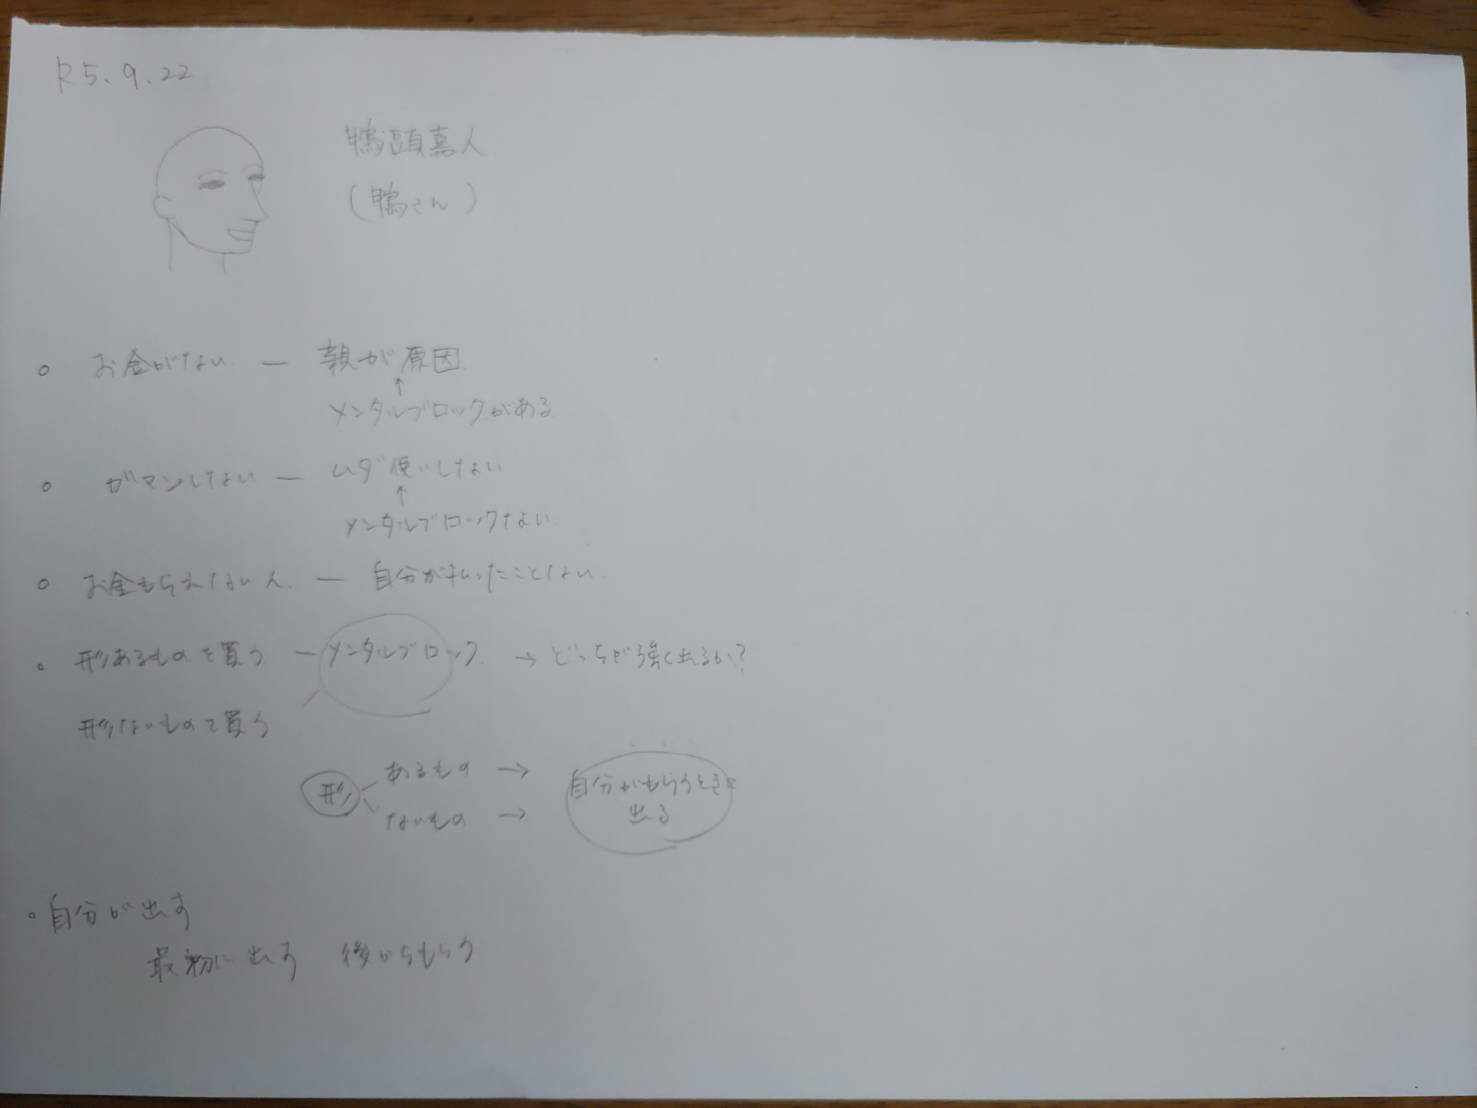 R5.9.22
鴨頭嘉人
(鴨さん)
○ お金がない ー 親が原因
↑
メンタルブロックがある
○ ガマンしない ー ムダ使いしない
↑
メンタルブロックない
○ お金もらえない人 ー 自分が払ったことない
○ 形あるものを買う ー メンタルブロック → どっちが強く出るか?
形ないものを買う
形 あるもの →
ないもの →
自分がもらうときに
出る
○ 自分が出す
最初に出す 後からもらう